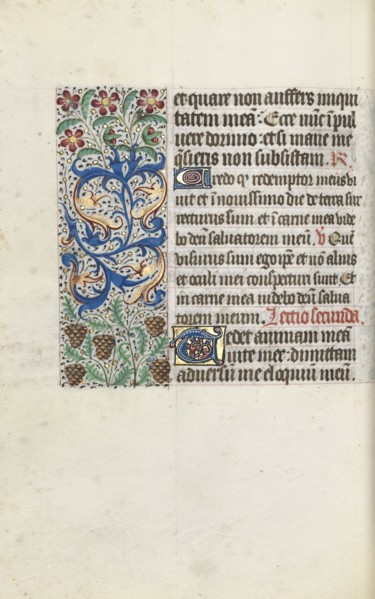 et quare non auffers iniqui
tatem meã: Ecce nũc ĩ pul
uere dormio: et si mane me
q̃sieris non subsistam. R̃.
Credo q̃ redemptor meus vi
uit et ĩ nouissimo die de terra sur
recturus sum et ĩ carne mea vide
bo deũ saluatorem meũ. V Quẽ
visurus sum ego ip̃e et nõ alius
et oculi mei conspecturi sunt Et
in carne mea videbo deũ salua
torem meum. Lectio secunda.
Tedet animam meã
vite mee: dimittam
adversũ me eloquiũ meũ.